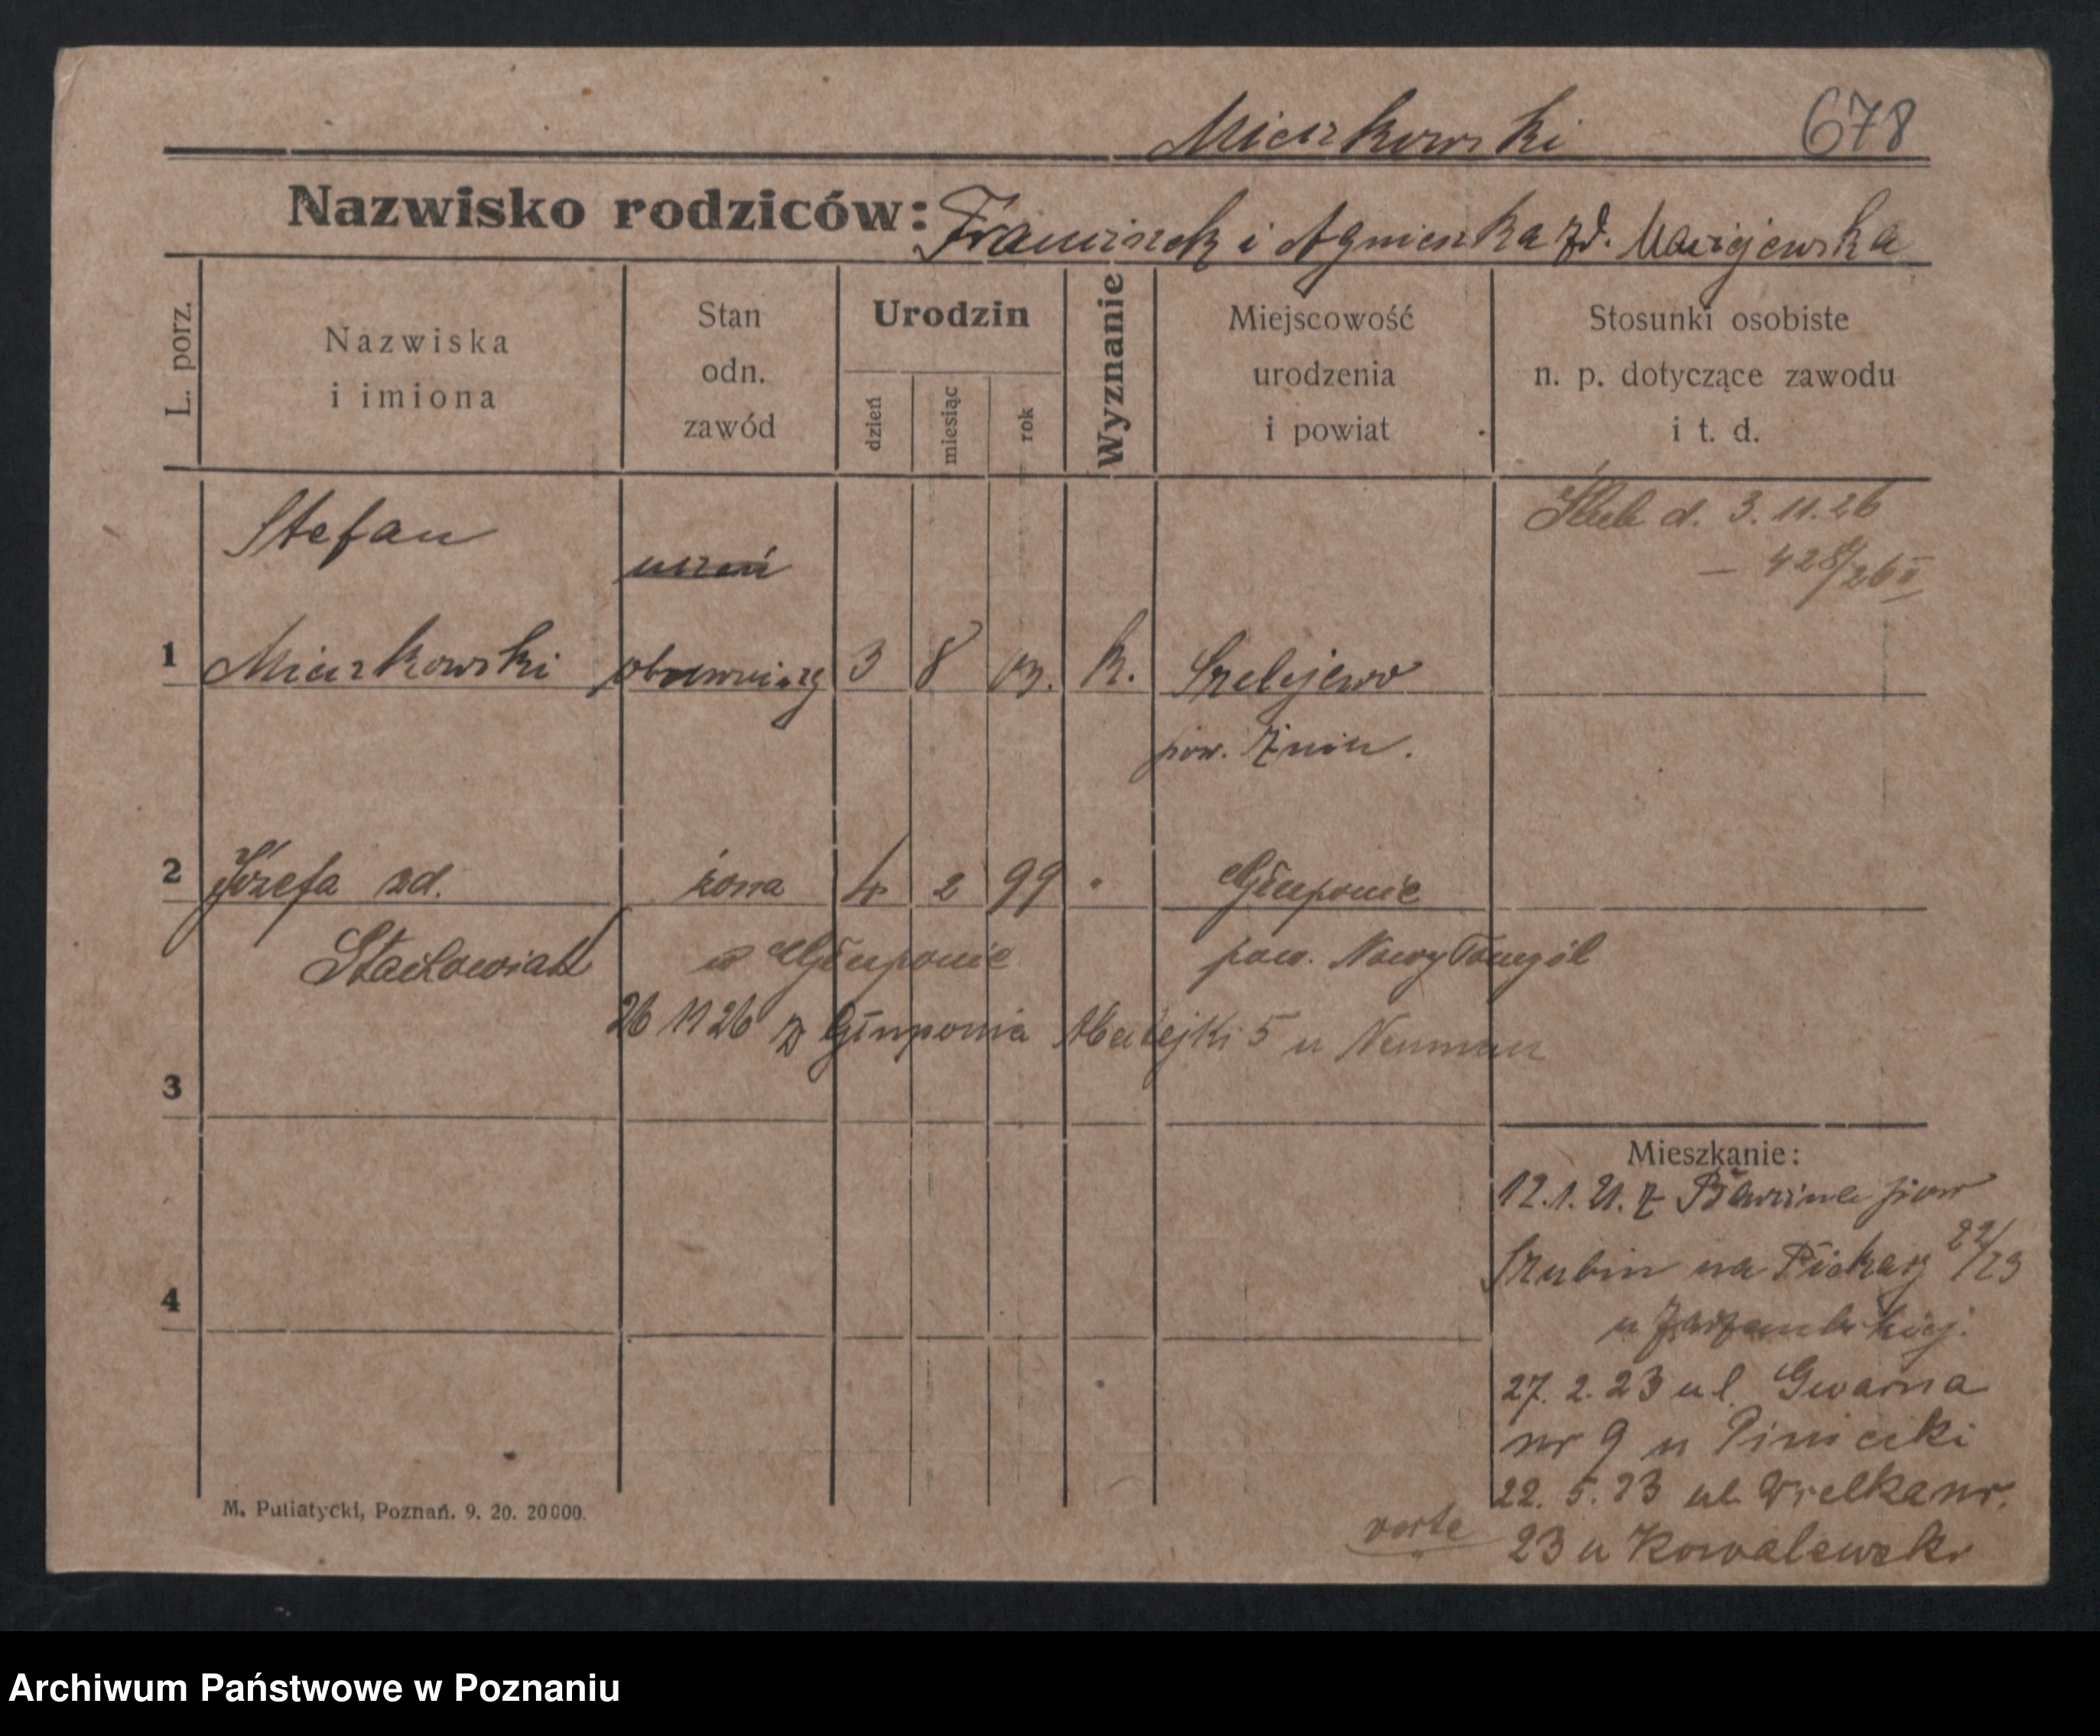 Mieszkowski 678
Nazwisko rodziców: Franciszek i Agnieszka zd. Maciejewska
L. porz.
Nazwiska
i imiona
Stan
odn.
zawód
Urodzin
dzień
miesiąc
rok
Wyznanie
Miejscowość
urodzenia
i powiat
Stosunki osobiste
n. p. dotyczące zawodu
i t. d.
Stefan uczeń Ślub d. 3. 11. 26
— 428/26 II
1 Mieszkowski 3 8 03. k. Szelejewo
pow. Żnin.
2 Józefa zd. żona 4 2 99 " Głuponie
Stachowiak w Głuponie pow. Nowy Tomyśl
26 11 26 z Głuponia Matejki 5 u Neuman
3
Mieszkanie:
12. 1. 21. z pow
Szubin na Piekary 22/23
u
4
27. 2. 23 ul. Gwarna
nr 9 u
22. 5. 23 ul. Wielka nr.
verte 23 u Kowalewski
M. Putiatycki, Poznań. 9. 20. 20000.
Archiwum Państwowe w Poznaniu